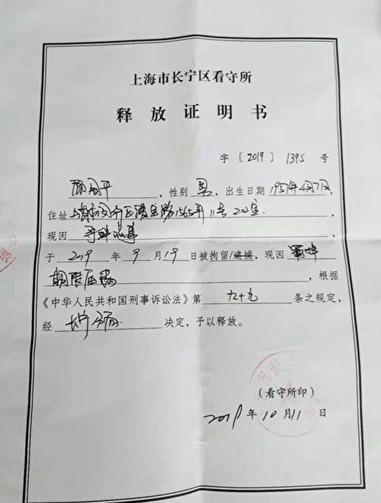 上海市长宁区看守所
释放证明书
字〔2019〕1395号
平，性别 男，出生日期 1951年4月7日，
住址 上海市闵行区 路1565弄11号20室，
现因 寻衅滋事
于 2019 年 9 月 19 日被拘留/逮捕，现因
期限届满，根据
《中华人民共和国刑事诉讼法》第 九十九 条之规定，
经 长宁分局 决定，予以释放。
（看守所印）
2019 年 10 月 11 日